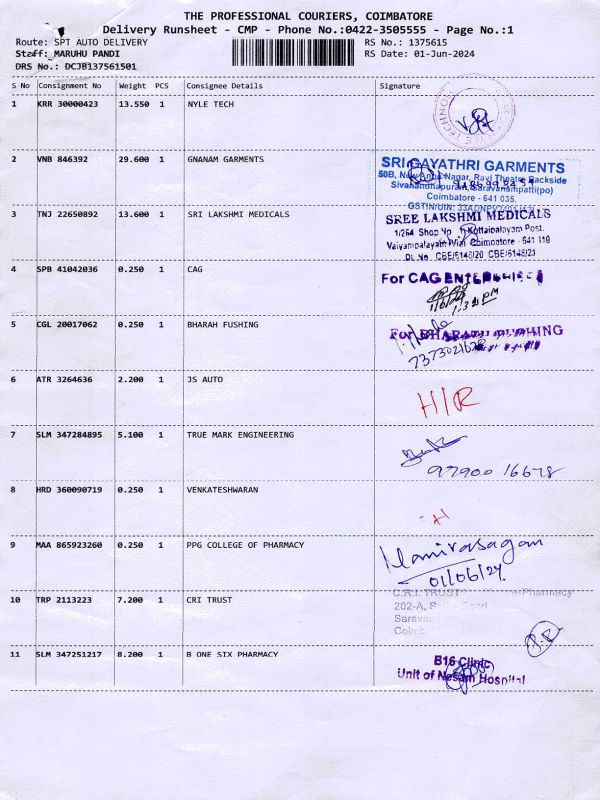 THE PROFESSIONAL COURIERS, COIMBATORE
Delivery Runsheet - CMP - Phone No.:0422-3505555 - Page No.:1
Route: SPT AUTO DELIVERY RS No.: 1375615
Staff: MARUHU PANDI RS Date: 01-Jun-2024
DRS No.: DCJB137561501
S No Consignment No Weight PCS Consignee Details Signature
1 KRR 30000423 13.550 1 NYLE TECH
2 VNB 846392 29.600 1 GNANAM GARMENTS
SRI GAYATHRI GARMENTS
50B, New Anna Nagar, Ravi Theatre Backside
Sivanandhapuram, Saravanampatti(po)
Coimbatore - 641 035.
GSTIN/UIN:
3 TNJ 22650892 13.600 1 SRI LAKSHMI MEDICALS
SREE LAKSHMI MEDICALS
1/264 Shop No Kottaipalayam Post,
Coimbatore - 641 110
DL No. CBE/6148/20 CBE/6148/21
4 SPB 41042036 0.250 1 CAG
For CAG ENTERPRISES
1.30 PM
5 CGL 20017062 0.250 1 BHARAH FUSHING
For BHARATH
7373021628
6 ATR 3264636 2.200 1 JS AUTO
H/R
7 SLM 347284895 5.100 1 TRUE MARK ENGINEERING
97900 16678
8 HRD 360090719 0.250 1 VENKATESHWARAN
9 MAA 865923260 0.250 1 PPG COLLEGE OF PHARMACY
01/06/24.
10 TRP 2113223 7.200 1 CRI TRUST
C.R.I. TRUST Pharmacy
202-A,
11 SLM 347251217 8.200 1 B ONE SIX PHARMACY
B16 Clinic
Unit of Nesam Hospital